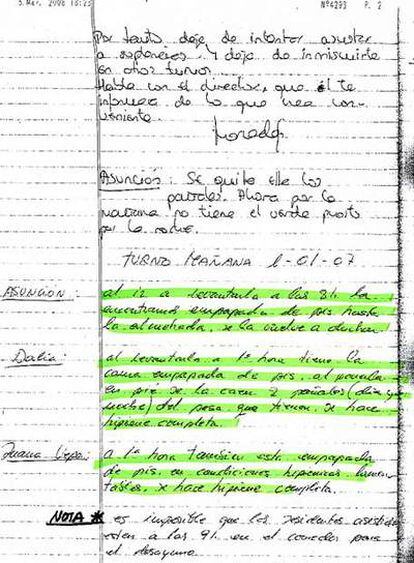 5.Mar. 2008 18:23 Nº4293 P. 2
Por tanto deja de intentar asustar
a suplencias. Y deja de inmiscuirte
en otros turnos.
Habla con el director, que él te
informará de lo que crea con-
veniente.
Asunción: Se quita ella los
pañales. Ahora por la
mañana no tiene el verde puesto
por la noche.
TURNO MAÑANA 2-01-07
ASUNCIÓN: al ir a levantarla a las 8h. la
encontramos empapada de pis hasta
la almohada, se la vuelve a duchar.
Dalia: al levantarla a 1ª hora tiene la
cama empapada de pis, al ponerla
en pie se le caen 2 pañales (día y
noche) del peso que tienen. se hace
higiene completa.
Juana a 1ª hora también está empapada
de pis, en condiciones higiénicas lamen-
tables, se hace higiene completa.
NOTA * es imposible que los residentes asistidos
estén a las 9h. en el comedor para
el desayuno.